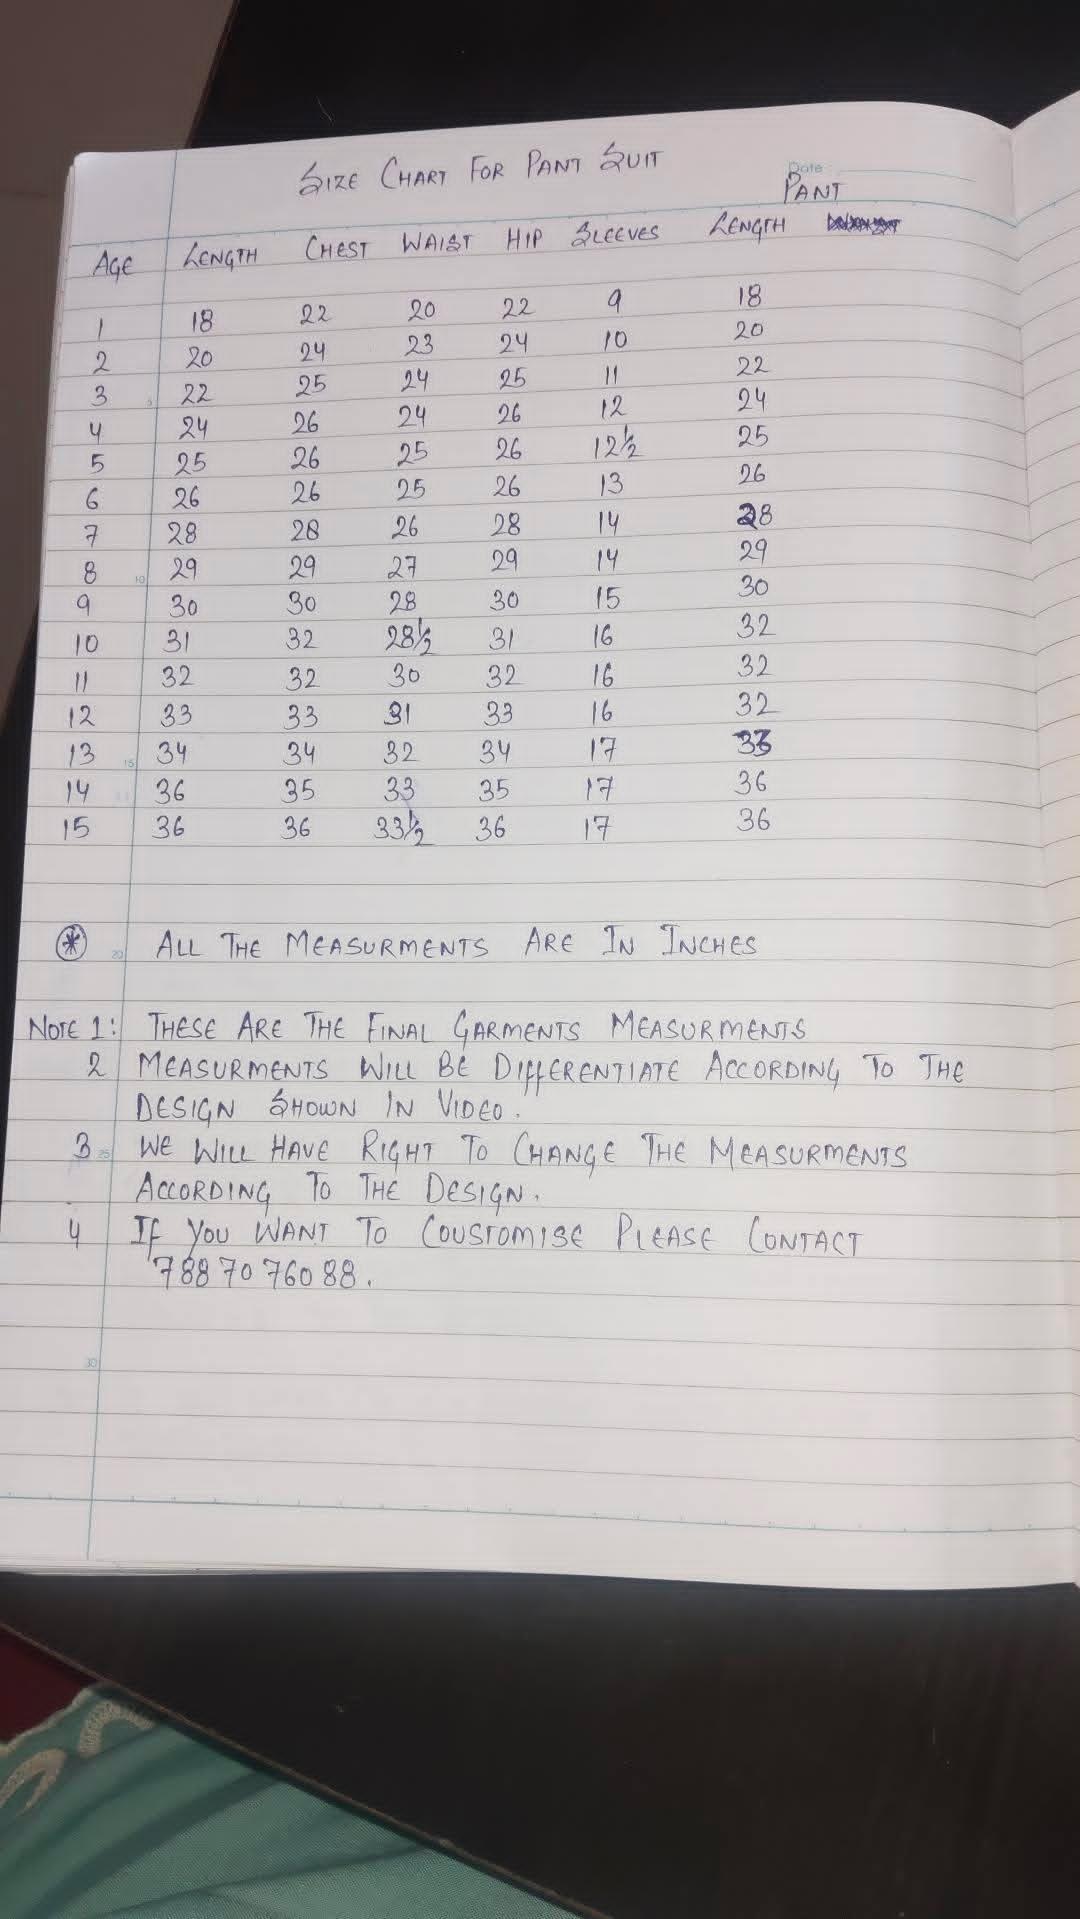 SIZE CHART FOR PANT SUIT
Date
PANT
AGE LENGTH CHEST WAIST HIP SLEEVES LENGTH
1 18 22 20 22 9 18
2 20 24 23 24 10 20
3 22 25 24 25 11 22
4 24 26 24 26 12 24
5 25 26 25 26 12½ 25
6 26 26 25 26 13 26
7 28 28 26 28 14 28
8 29 29 27 29 14 29
9 30 30 28 30 15 30
10 31 32 28½ 31 16 32
11 32 32 30 32 16 32
12 33 33 31 33 16 32
13 34 34 32 34 17
14 36 35 33 35 17 36
15 36 36 33½ 36 17 36
* ALL THE MEASURMENTS ARE IN INCHES
NOTE 1: THESE ARE THE FINAL GARMENTS MEASURMENTS
2 MEASURMENTS WILL BE DIFFERENTIATE ACCORDING TO THE
DESIGN SHOWN IN VIDEO.
3 WE WILL HAVE RIGHT TO CHANGE THE MEASURMENTS
ACCORDING TO THE DESIGN.
4 IF YOU WANT TO COUSTOMISE PLEASE CONTACT
788 70 760 88.